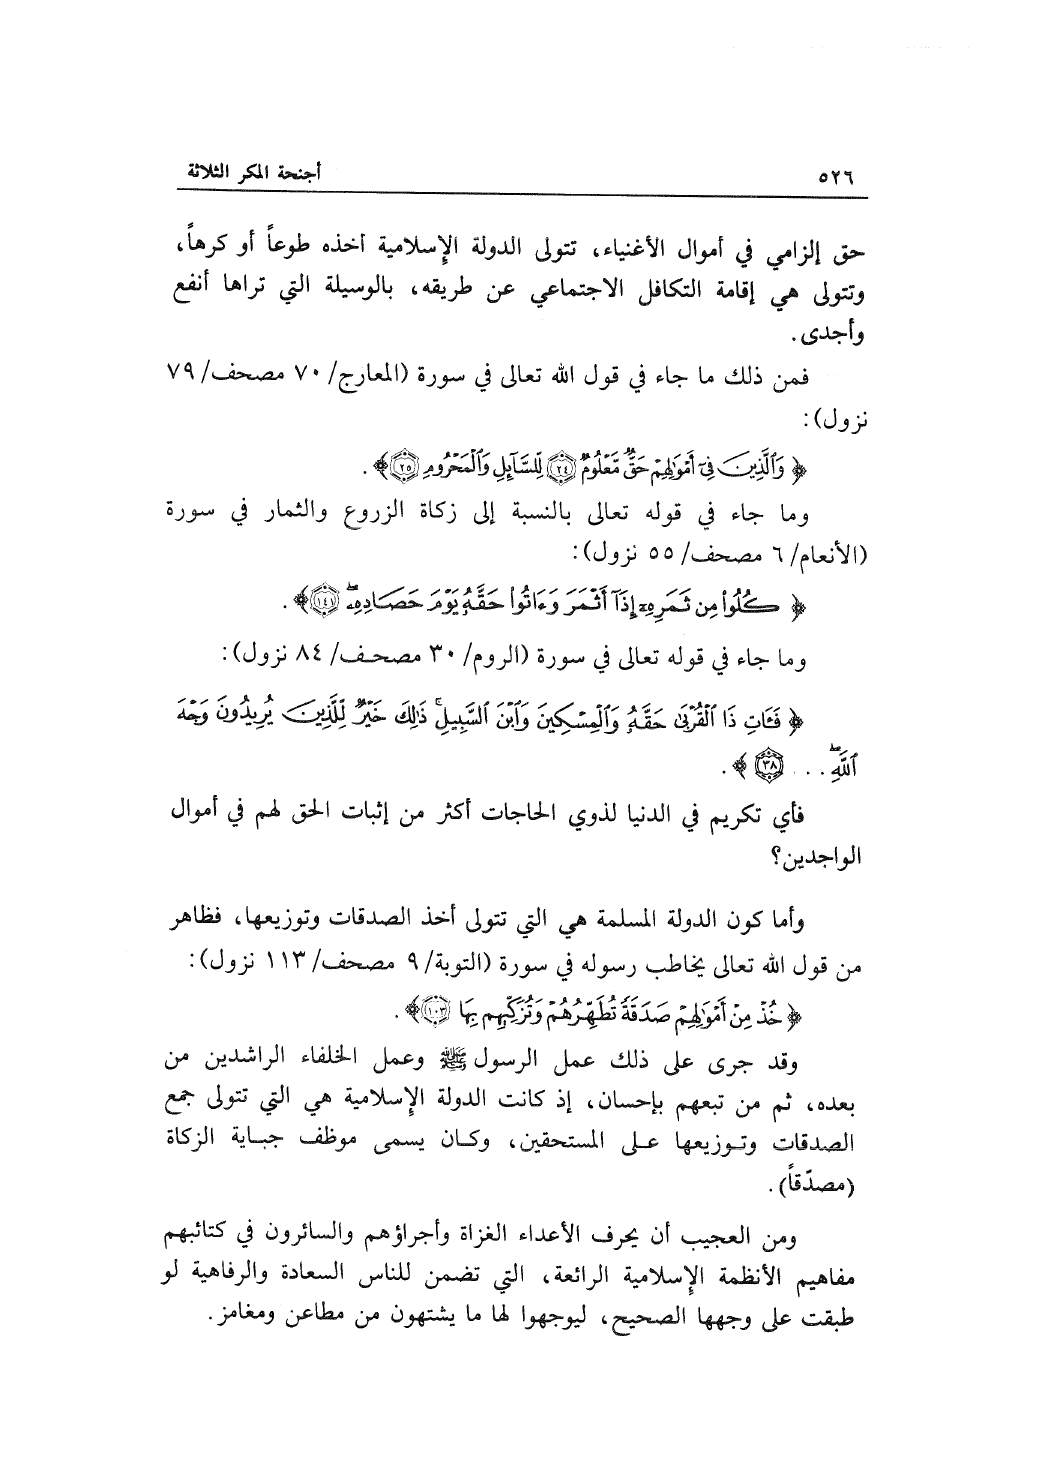 ٥٢٦
أجنحة المكر الثلاثة
حق إلزامي في أموال الأغنياء، تتولى الدولة الإسلامية أخذه طوعاً أو كرهاً،
وتتولى هي إقامة التكافل الاجتماعي عن طريقه، بالوسيلة التي تراها أنفع
وأجدى.
فمن ذلك ما جاء في قول الله تعالى في سورة (المعارج/ ٧٠ مصحف/ ٧٩
نزول):
﴿وَٱلَّذِينَ فِىٓ أَمْوَٰلِهِمْ حَقٌّ مَّعْلُومٌ ۝٢٤ لِّلسَّآئِلِ وَٱلْمَحْرُومِ ۝٢٥﴾.
وما جاء في قوله تعالى بالنسبة إلى زكاة الزروع والثمار في سورة
(الأنعام/ ٦ مصحف/ ٥٥ نزول):
﴿كُلُوا۟ مِن ثَمَرِهِۦٓ إِذَآ أَثْمَرَ وَءَاتُوا۟ حَقَّهُۥ يَوْمَ حَصَادِهِۦ ۖ ۝١٤١﴾.
وما جاء في قوله تعالى في سورة (الروم/ ٣٠ مصحف/ ٨٤ نزول):
﴿فَـَٔاتِ ذَا ٱلْقُرْبَىٰ حَقَّهُۥ وَٱلْمِسْكِينَ وَٱبْنَ ٱلسَّبِيلِ ۚ ذَٰلِكَ خَيْرٌ لِّلَّذِينَ يُرِيدُونَ وَجْهَ
ٱللَّهِ ۖ ... ۝٣٨﴾.
فأي تكريم في الدنيا لذوي الحاجات أكثر من إثبات الحق لهم في أموال
الواجدين؟
وأما كون الدولة المسلمة هي التي تتولى أخذ الصدقات وتوزيعها، فظاهر
من قول الله تعالى يخاطب رسوله في سورة (التوبة/ ٩ مصحف/ ١١٣ نزول):
﴿خُذْ مِنْ أَمْوَٰلِهِمْ صَدَقَةً تُطَهِّرُهُمْ وَتُزَكِّيهِم بِهَا ۝١٠٣﴾.
وقد جرى على ذلك عمل الرسول ﷺ وعمل الخلفاء الراشدين من
بعده، ثم من تبعهم بإحسان، إذ كانت الدولة الإسلامية هي التي تتولى جمع
الصدقات وتوزيعها على المستحقين، وكان يسمى موظف جباية الزكاة
(مصدّقاً).
ومن العجيب أن يحرف الأعداء الغزاة وأجراؤهم والسائرون في كتائبهم
مفاهيم الأنظمة الإسلامية الرائعة، التي تضمن للناس السعادة والرفاهية لو
طبقت على وجهها الصحيح، ليوجهوا لها ما يشتهون من مطاعن ومغامز.